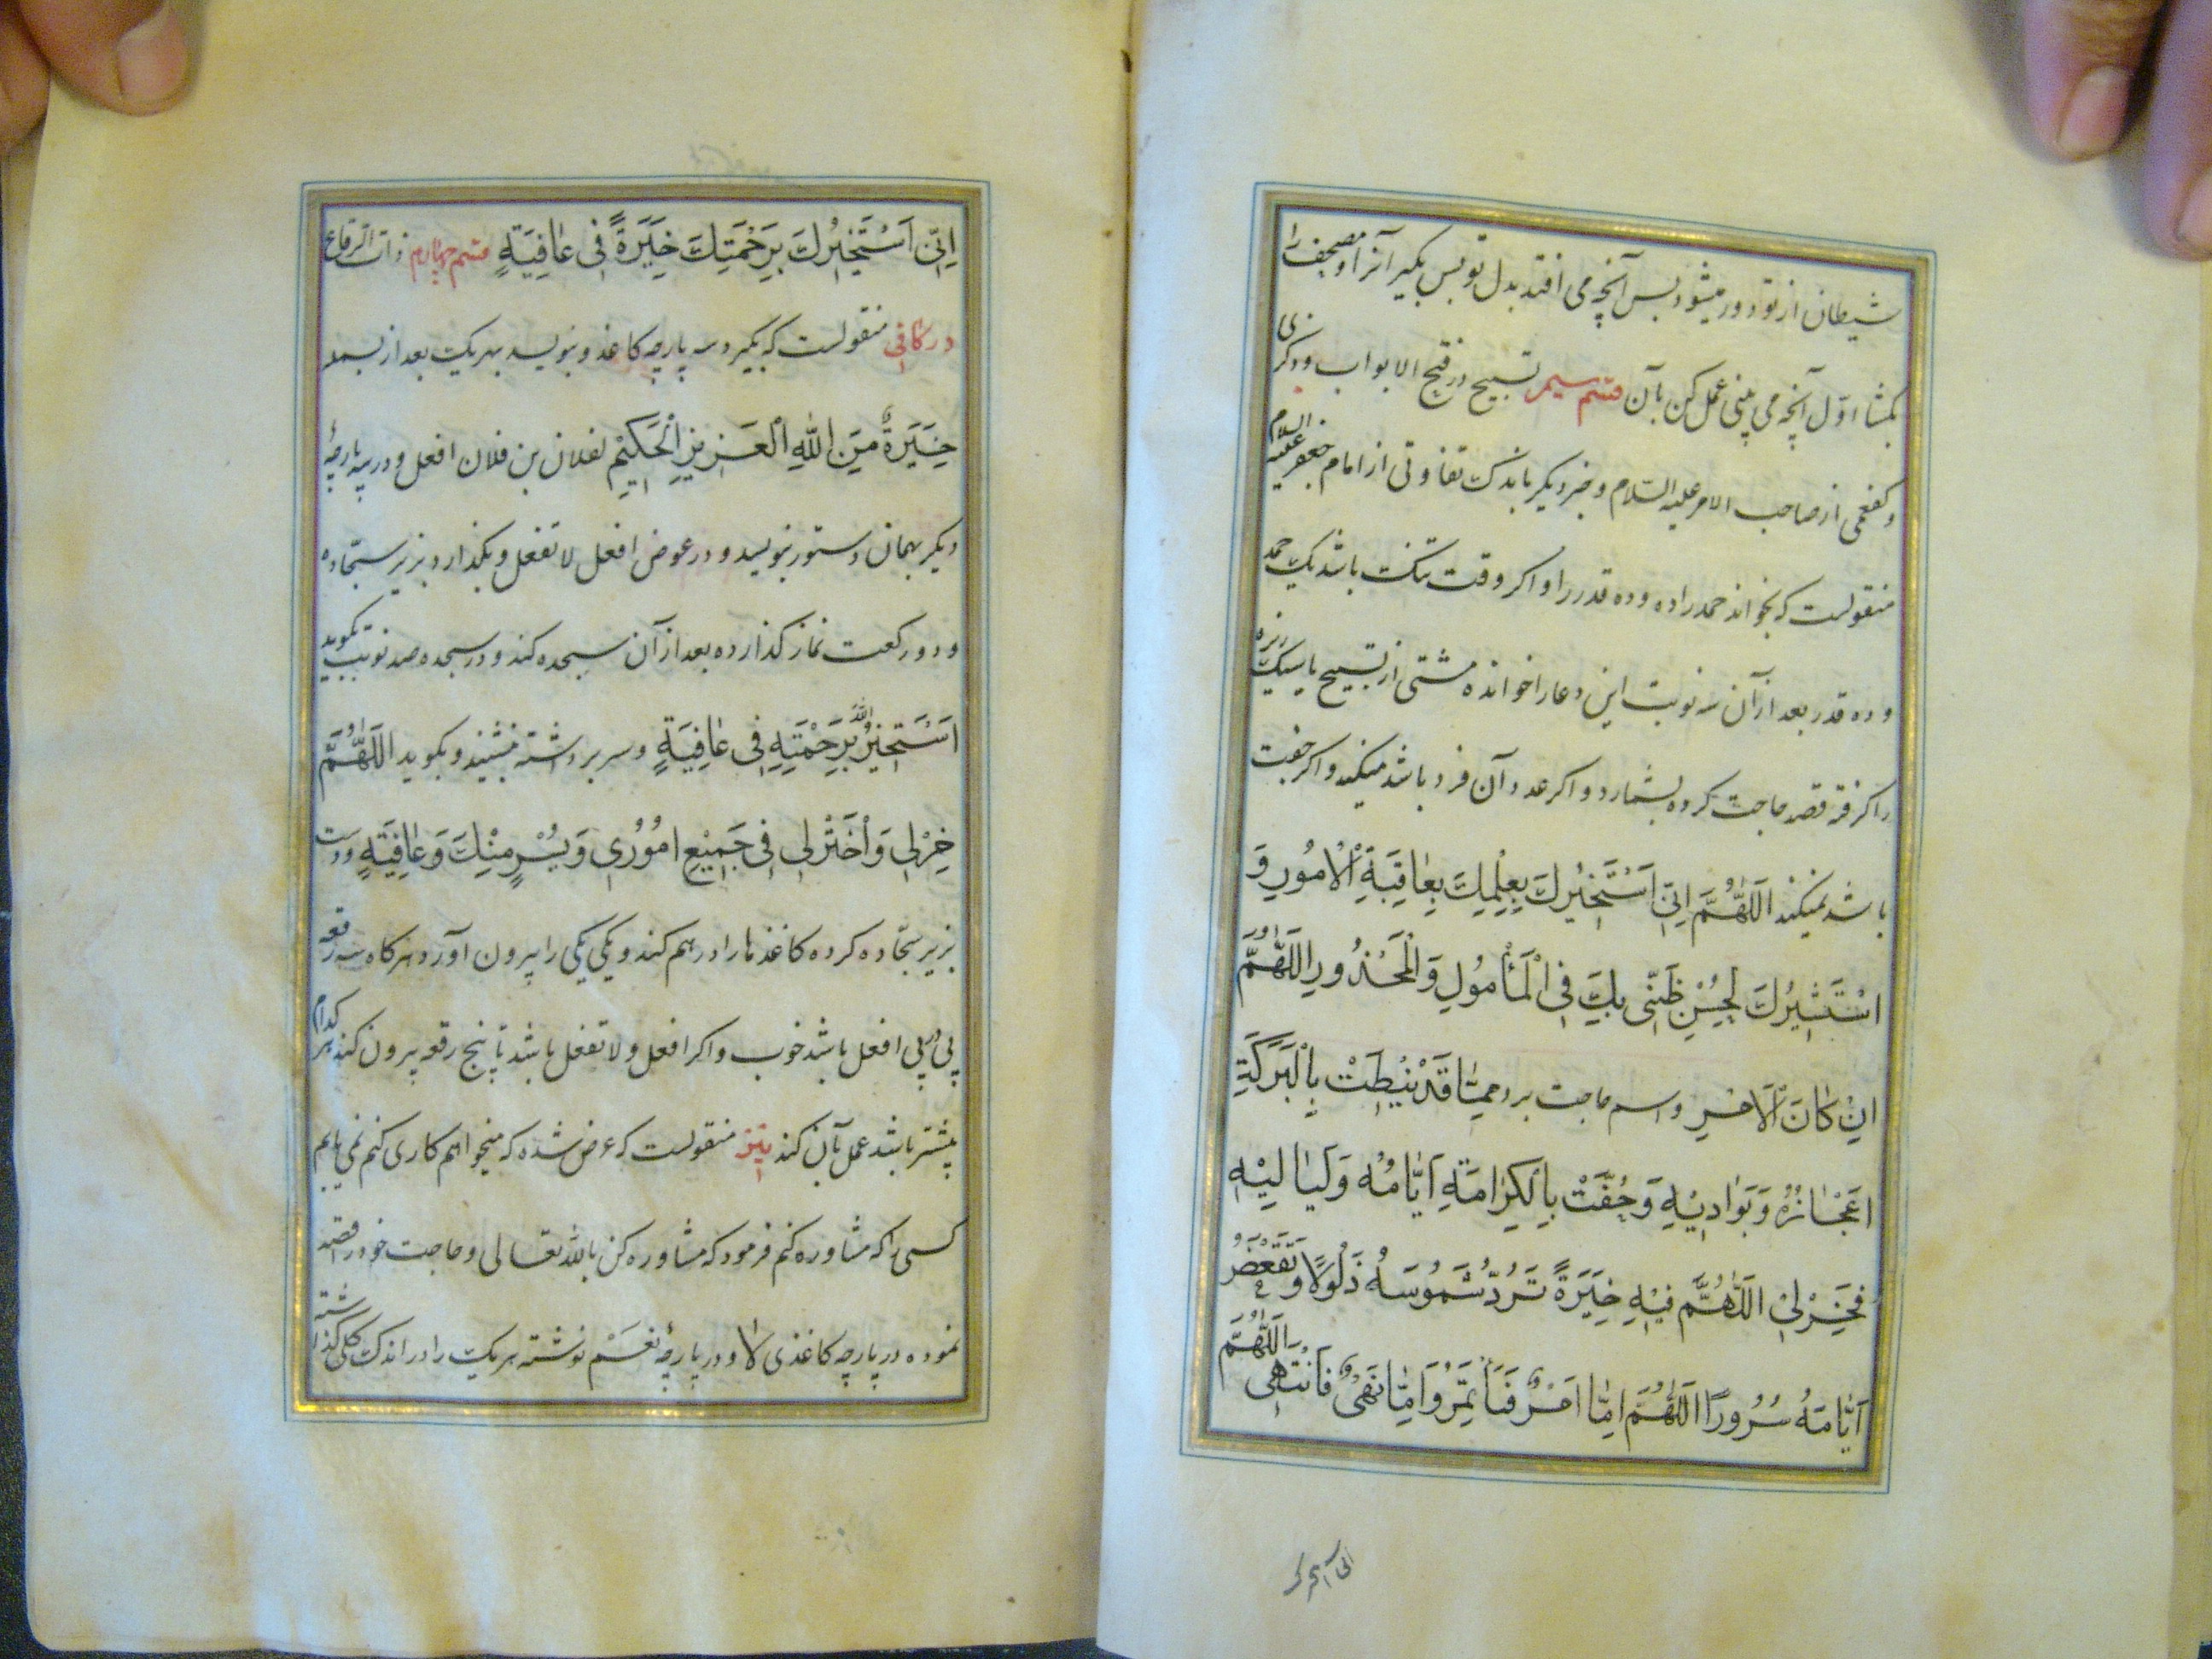 شیطان از تو دور میشود پس آنچه می افتد بدل تو پس بگیر آنرا و مصحف را
بگشا اوّل آنچه می بینی عمل کن بآن قسم سیم تسبیح در فتح الابواب و ذکری
و کفعمی از صاحب الامر علیه السّلام و خبر دیگر باندک تفاوتی از امام جعفر علیه السلام
منقولست که بخواند حمد را ده و ده قدر را و اگر وقت تنگ باشد یک حمد
و ده قدر بعد از آن سه نوبت این دعا را خوانده مشتی از تسبیح یا سنک ریزه
را گرفته قصد حاجت کرده بشمارد و اگر عدد آن فرد باشد میکند و اگر جفت
باشد نمیکند اَللّٰهُمَّ اِنّی اَسْتَخیرُكَ بِعِلْمِكَ بِعاقِبَةِ الْاُمُورِ وَ
اَسْتَشیرُكَ لِحُسْنِ ظَنّی بِكَ فِی الْمَأْمُولِ وَالْمَحْذُورِ اَللّٰهُمَّ
اِنْ کانَ الْاَمْرُ و اسم حاجت برد مِمّا قَدْ نیطَتْ بِالْبَرَکَةِ
اَعْجازُهُ وَ بَوادیهِ وَ حُفَّتْ بِالْکَرامَةِ اَیّامُهُ وَ لَیالیهِ
فَخِرْ لی اَللّٰهُمَّ فیهِ خِیَرَةً تَرُدُّ شَمُوسَهُ ذَلُولًا وَ تَقْعَضُ
اَیّامَهُ سُرُورًا اَللّٰهُمَّ اِمّا اَمْرٌ فَأْتَمِرُ وَ اِمّا نَهْیٌ فَاَنْتَهی اَللّٰهُمَّ
اِنّی اَسْتَخیرُكَ بِرَحْمَتِكَ خِیَرَةً فی عافِیَةٍ قسم چهارم ذات الرقاع
در کافی منقولست که بگیرد سه پارچه کاغذ و بنویسد بهریک بعد از بسمله
خِیَرَةٌ مِنَ اللّٰهِ الْعَزیزِ الْحَکیمِ لفلان بن فلان افعل و در سه پارچهٔ
دیگر بهمان دستور بنویسد و در عوض افعل لا تفعل و بگذارد بزیر سجّاده
و دو رکعت نماز گذارده بعد از آن سجده کند و در سجده صد نوبت بگوید
اَسْتَخیرُ اللّٰهَ بِرَحْمَتِهِ فی عافِیَةٍ و سر برداشته بنشیند و بگوید اَللّٰهُمَّ
خِرْ لی وَ اخْتَرْ لی فی جَمیعِ اُمُوری وَ یُسْرٍ مِنْكَ وَ عافِیَةٍ و دست
بزیر سجّاده کرده کاغذها را درهم کند و یکی یکی را بیرون آورد هرگاه سه رقعه
پی در پی افعل باشد خوب و اگر افعل و لا تفعل باشد تا پنج رقعه بیرون کند هر کدام
بیشتر باشد عمل بآن کند نیز منقولست که عرض شده که میخواهم کاری کنم نمی یابم
کسی را که مشاوره کنم فرمود که مشاوره کن بالله تعالی و حاجت خود را قصد
نموده در پارچه کاغذی لا و در پارچهٔ نَعَمْ نوشته هریک را در اندک گلی گذاشته